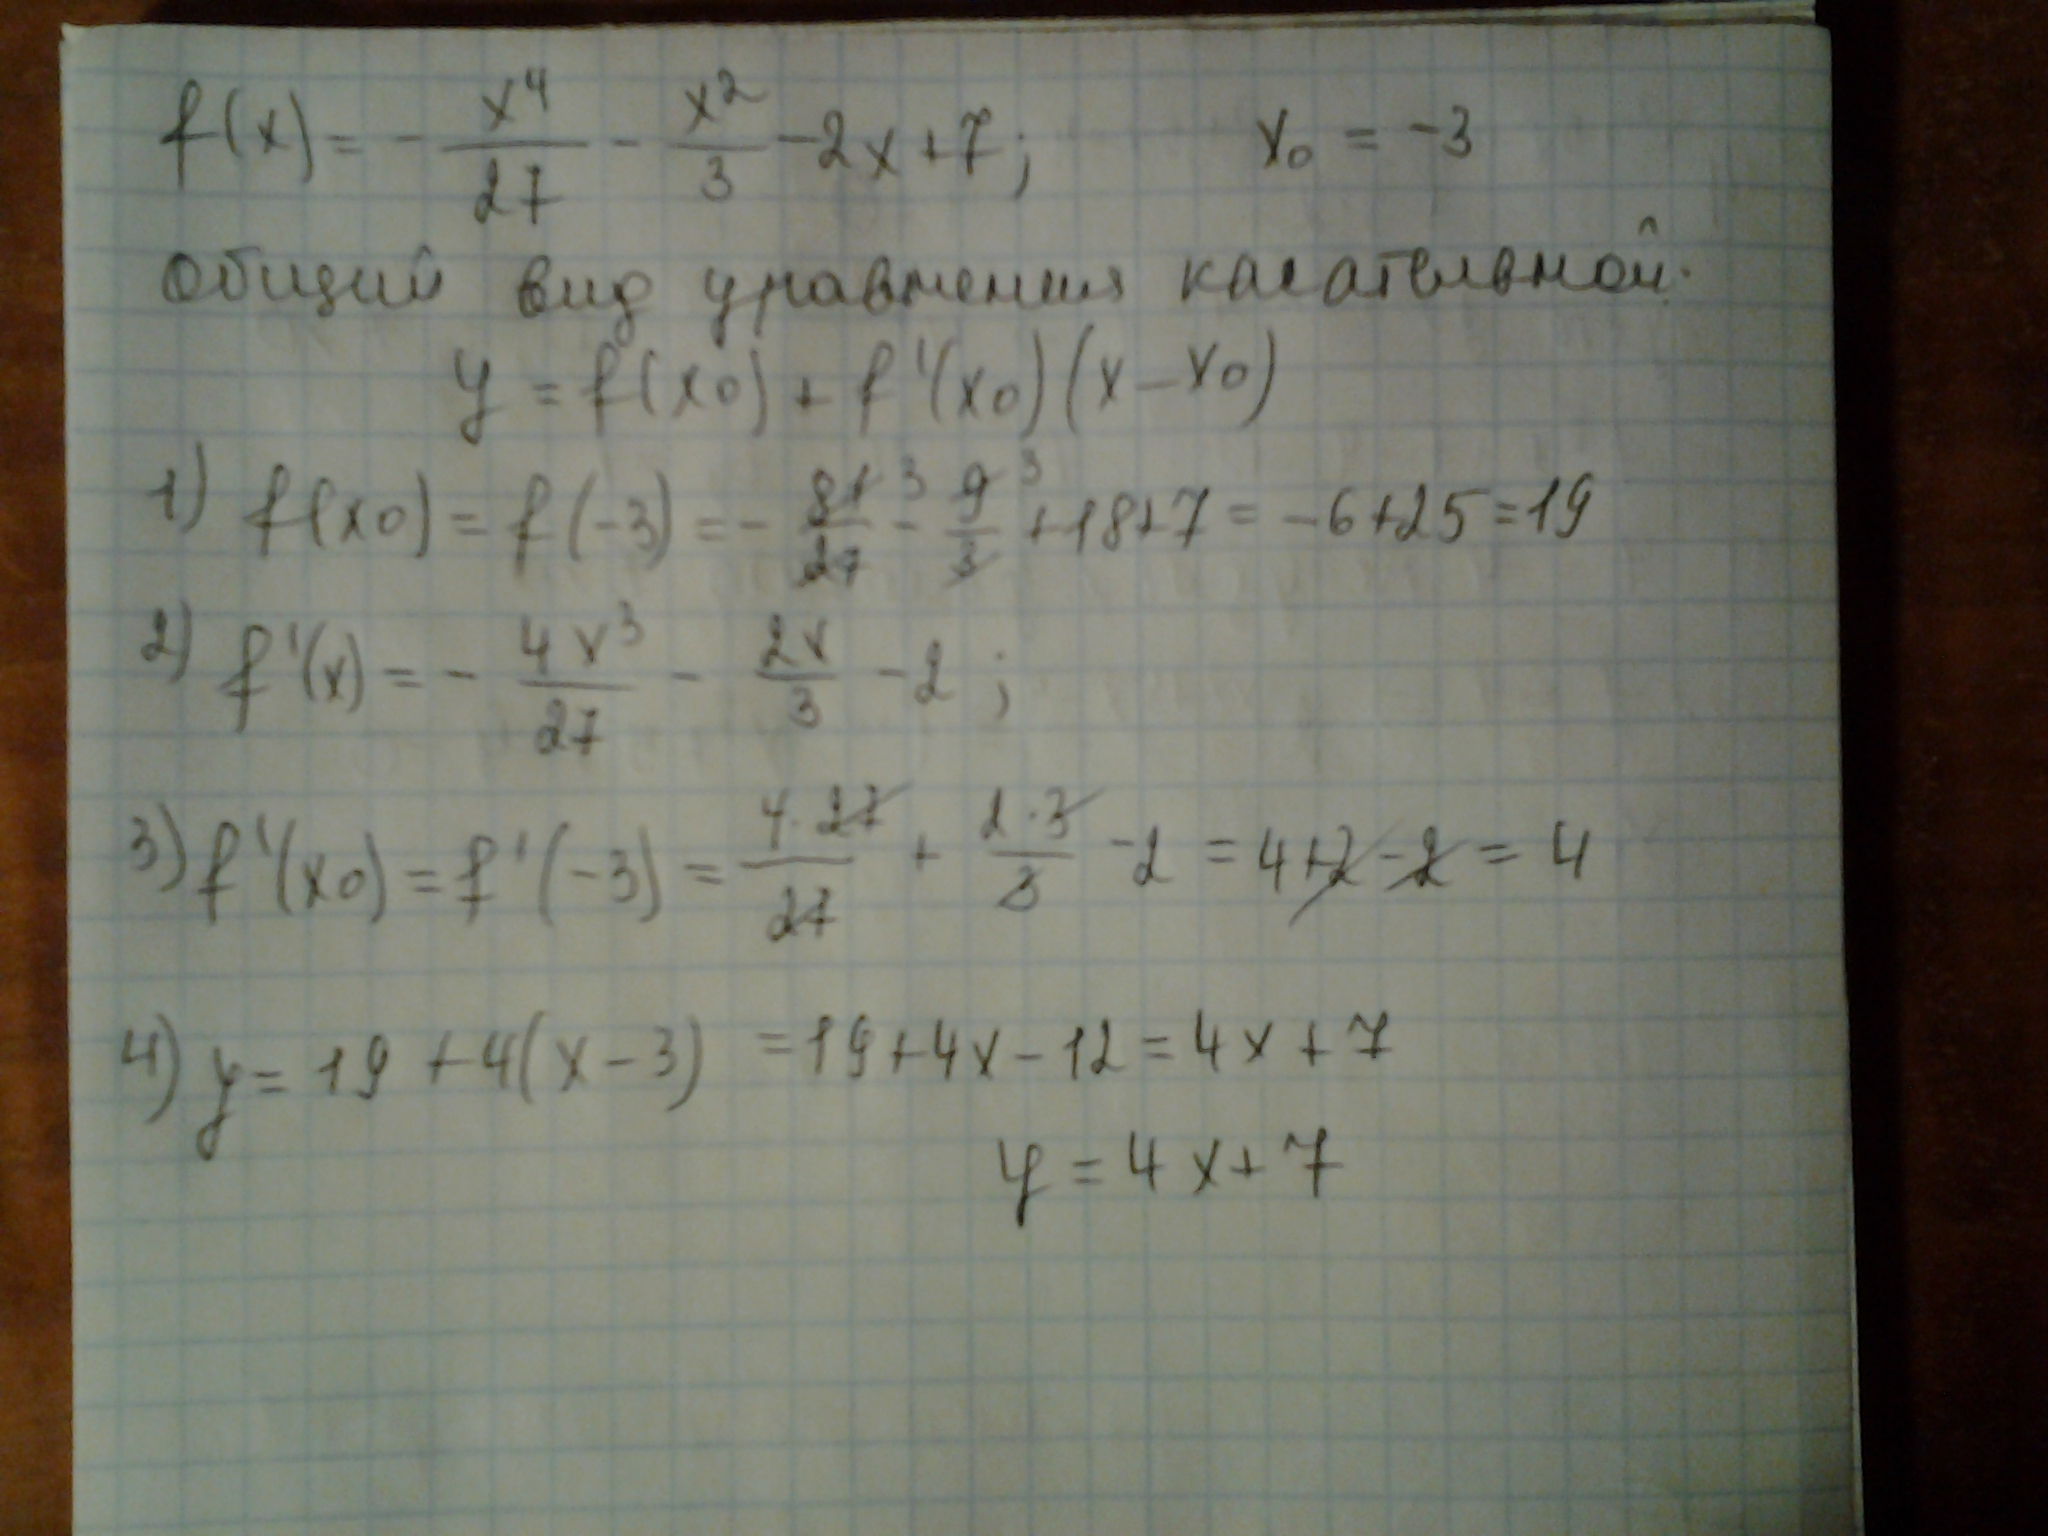 f(x) = - x⁴/27 - x²/3 - 2x + 7; x₀ = -3
Общий вид уравнения касательной.
y = f(x₀) + f'(x₀)(x - x₀)
1) f(x₀) = f(-3) = - 81/27 3 - 9/3 3 + 18 + 7 = -6 + 25 = 19
2) f'(x) = - 4x³/27 - 2x/3 - 2;
3) f'(x₀) = f'(-3) = 4·27/27 + 2·3/3 - 2 = 4 + 2 - 2 = 4
4) y = 19 + 4(x - 3) = 19 + 4x - 12 = 4x + 7
y = 4x + 7